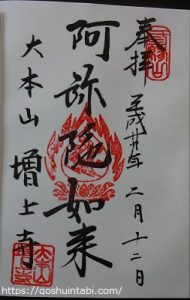 奉拝
平成廿年 二月十二日
阿弥陀如来
大本山 増上寺
https://goshuintabi.com/